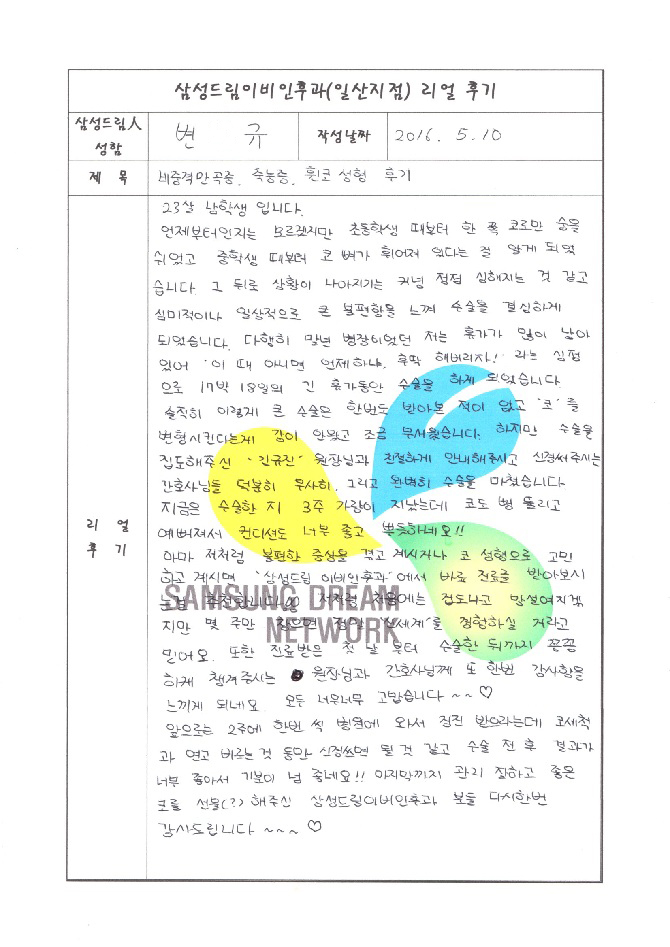 삼성드림이비인후과(일산지점) 리얼 후기
삼성드림人
성함
변 규
작성날짜
2016. 5. 10
제 목
비중격만곡증, 축농증, 휜코 성형 후기
23살 남학생 입니다.
언제부터인지는 모르겠지만 초등학생 때부터 한 쪽 코로만 숨을
쉬었고 중학생 때부터 코 뼈가 휘어져 있다는 걸 알게 되었
습니다. 그 뒤로 상황이 나아지기는 커녕 점점 심해지는 것 같고
심미적이나 일상적으로 큰 불편함을 느껴 수술을 결심하게
되었습니다. 다행히 말년 병장이었던 저는 휴가가 많이 남아
있어 '이 때 아니면 언제하냐. 후딱 해버리자!' 라는 심정
으로 17박 18일의 긴 휴가동안 수술을 하게 되었습니다.
솔직히 이렇게 큰 수술은 한번도 받아본 적이 없고 '코'를
변형시킨다는게 감이 안왔고 조금 무서웠습니다. 하지만 수술을
집도해주신 '김규진' 원장님과 친절하게 안내해주시고 신경써주시는
간호사님들 덕분히 무사히, 그리고 완벽히 수술을 마쳤습니다
지금은 수술한 지 3주 가량이 지났는데 코도 뻥 뚫리고
예뻐져서 컨디션도 너무 좋고 뿌듯하네요!!
리 얼
후 기
아마 저처럼 불편한 증상을 겪고 계시거나 코 성형으로 고민
하고 계시면 '삼성드림 이비인후과'에서 바로 진료를 받아보시
는걸 추천합니다!! 저처럼 처음에는 겁도나고 망설여지겠
지만 몇 주만 참으면 정말 '신세계'를 경험하실 거라고
믿어요. 또한 진료받은 첫 날 부터 수술한 뒤까지 꼼꼼
하게 챙겨주시는 원장님과 간호사님께 또 한번 감사함을
느끼게 되네요 모든 너무너무 고맙습니다 ~~ ♡
앞으로는 2주에 한번 씩 병원에 와서 검진 받으라는데 코세척
과 연고 바르는 것 동안 신경쓰면 될 것 같고 수술 전 후 결과가
너무 좋아서 기분이 넘 좋네요!! 마지막까지 관리 잘하고 좋은
코를 선물(?) 해주신 삼성드림이비인후과 분들 다시한번
감사드립니다 ~~~ ♡
SAMSUNG DREAM
NETWORK